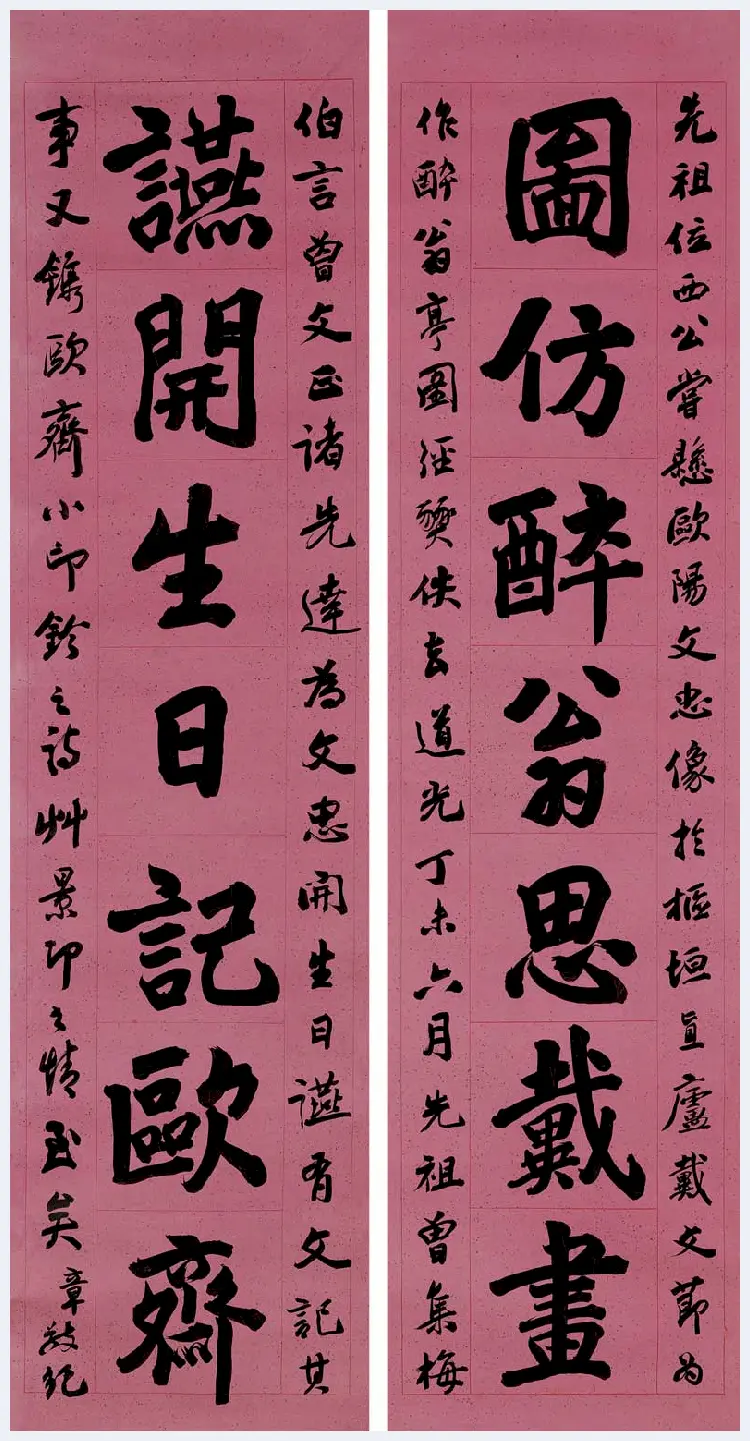 先祖位西公嘗懸歐陽文忠像於樞垣直廬戴文節為
圖仿醉翁思戴畫
作醉翁亭圖經燹佚去道光丁未六月先祖曾集梅
伯言曾文正諸先達為文忠開生日讌有文記其
讌開生日記歐齋
事又鐫歐齋小印鈐之詩艸景卬之情至矣章敬紀